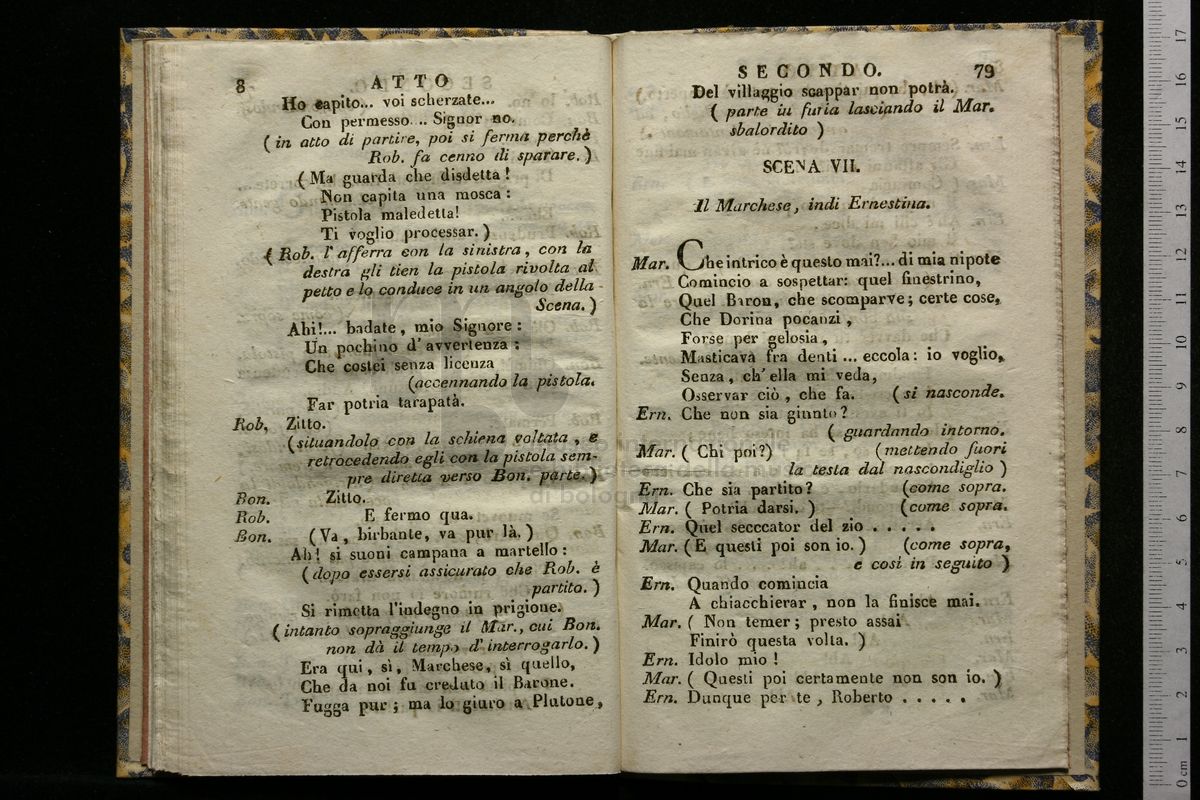 8 ATTO
Ho capito... voi scherzate...
Con permesso... Signor no.
(in atto di partire, poi si ferma perchè
Rob. fa cenno di sparare.)
(Ma guarda che disdetta!
Non capita una mosca:
Pistola maledetta!
Ti voglio processar.)
(Rob. l'afferra con la sinistra, con la
destra gli tien la pistola rivolta al
petto e lo conduce in un angolo della
Scena.)
Ahi!... badate, mio Signore:
Un pochino d'avvertenza:
Che costei senza licenza
(accennando la pistola.
Far potria tarapatà.
Rob. Zitto.
(situandolo con la schiena voltata, e
retrocedendo egli con la pistola sem-
pre diretta verso Bon. parte.)
Bon. Zitto.
Rob. E fermo qua.
Bon. (Va, birbante, va pur là.)
Ah! si suoni campana a martello:
(dopo essersi assicurato che Rob. è
partito.)
Si rimetta l'indegno in prigione.
(intanto sopraggiunge il Mar., cui Bon.
non dà il tempo d'interrogarlo.)
Era qui, sì, Marchese, sì quello,
Che da noi fu creduto il Barone.
Fugga pur; ma lo giuro a Plutone,
SECONDO. 79
Del villaggio scappar non potrà.
(parte in furia lasciando il Mar.
sbalordito)
SCENA VII.
Il Marchese, indi Ernestina.
Mar. Che intrico è questo mai?... di mia nipote
Comincio a sospettar: quel finestrino,
Quel Baron, che scomparve; certe cose,
Che Dorina pocanzi,
Forse per gelosia,
Masticava fra denti... eccola: io voglio,
Senza, ch'ella mi veda,
Osservar ciò, che fa. (si nasconde.
Ern. Che non sia giunto?
(guardando intorno.
Mar. (Chi poi?) (mettendo fuori
la testa dal nascondiglio)
Ern. Che sia partito? (come sopra.
Mar. (Potria darsi.) (come sopra.
Ern. Quel secccator del zio.....
Mar. (E questi poi son io.) (come sopra,
e così in seguito)
Ern. Quando comincia
A chiacchierar, non la finisce mai.
Mar. (Non temer; presto assai
Finirò questa volta.)
Ern. Idolo mio!
Mar. (Questi poi certamente non son io.)
Ern. Dunque per te, Roberto.....
0 cm 1 2 3 4 5 6 7 8 9 10 11 12 13 14 15 16 17